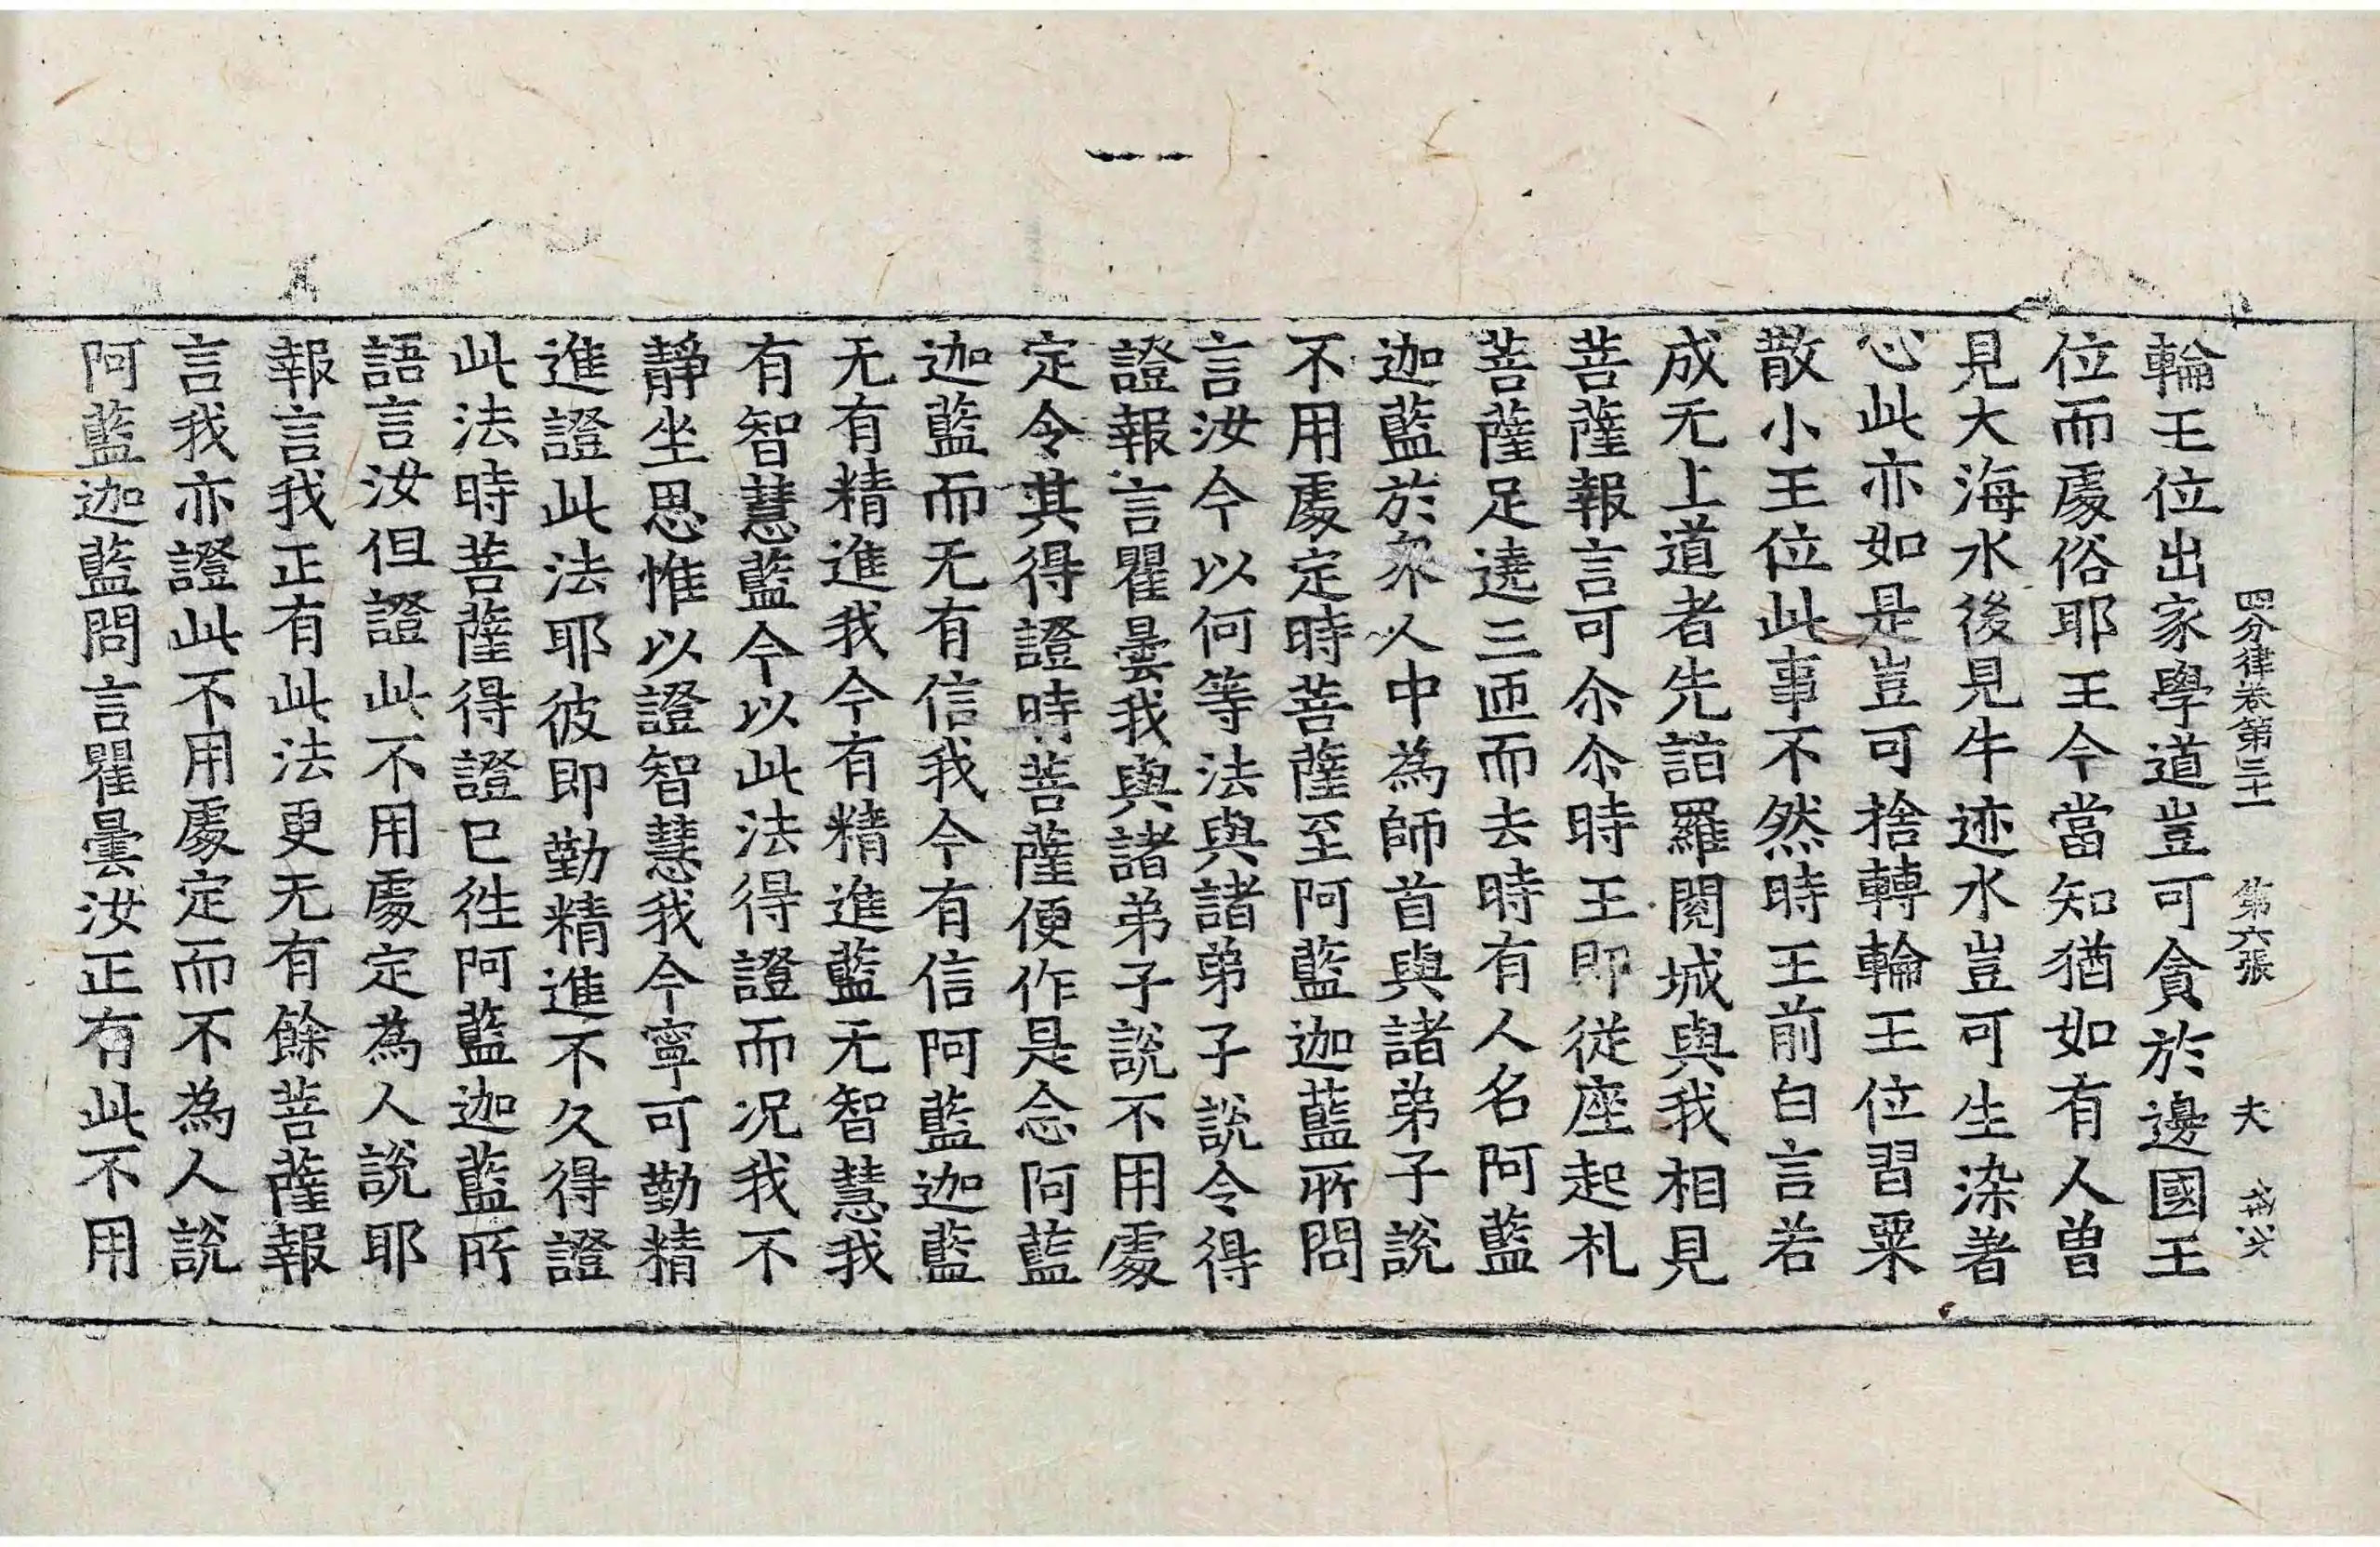 四分律卷第三十一 第六張 夫
輪王位出家學道豈可貪於邊國王
位而處俗耶王今當知猶如有人曾
見大海水後見牛迹水豈可生染著
心此亦如是豈可捨轉輪王位習粟
散小王位此事不然時王前白言若
成无上道者先詣羅閱城與我相見
菩薩報言可尒尒時王即從座起礼
菩薩足遶三匝而去時有人名阿藍
迦藍於衆人中為師首與諸弟子說
不用處定時菩薩至阿藍迦藍所問
言汝今以何等法與諸弟子說令得
證報言瞿曇我與諸弟子說不用處
定令其得證時菩薩便作是念阿藍
迦藍而无有信我今有信阿藍迦藍
无有精進我今有精進藍无智慧我
有智慧藍今以此法得證而况我不
靜坐思惟以證智慧我今寧可勤精
進證此法耶彼即勤精進不久得證
此法時菩薩得證已徃阿藍迦藍所
語言汝但證此不用處定為人說耶
報言我正有此法更无有餘菩薩報
言我亦證此不用處定而不為人說
阿藍迦藍問言瞿曇汝正有此不用